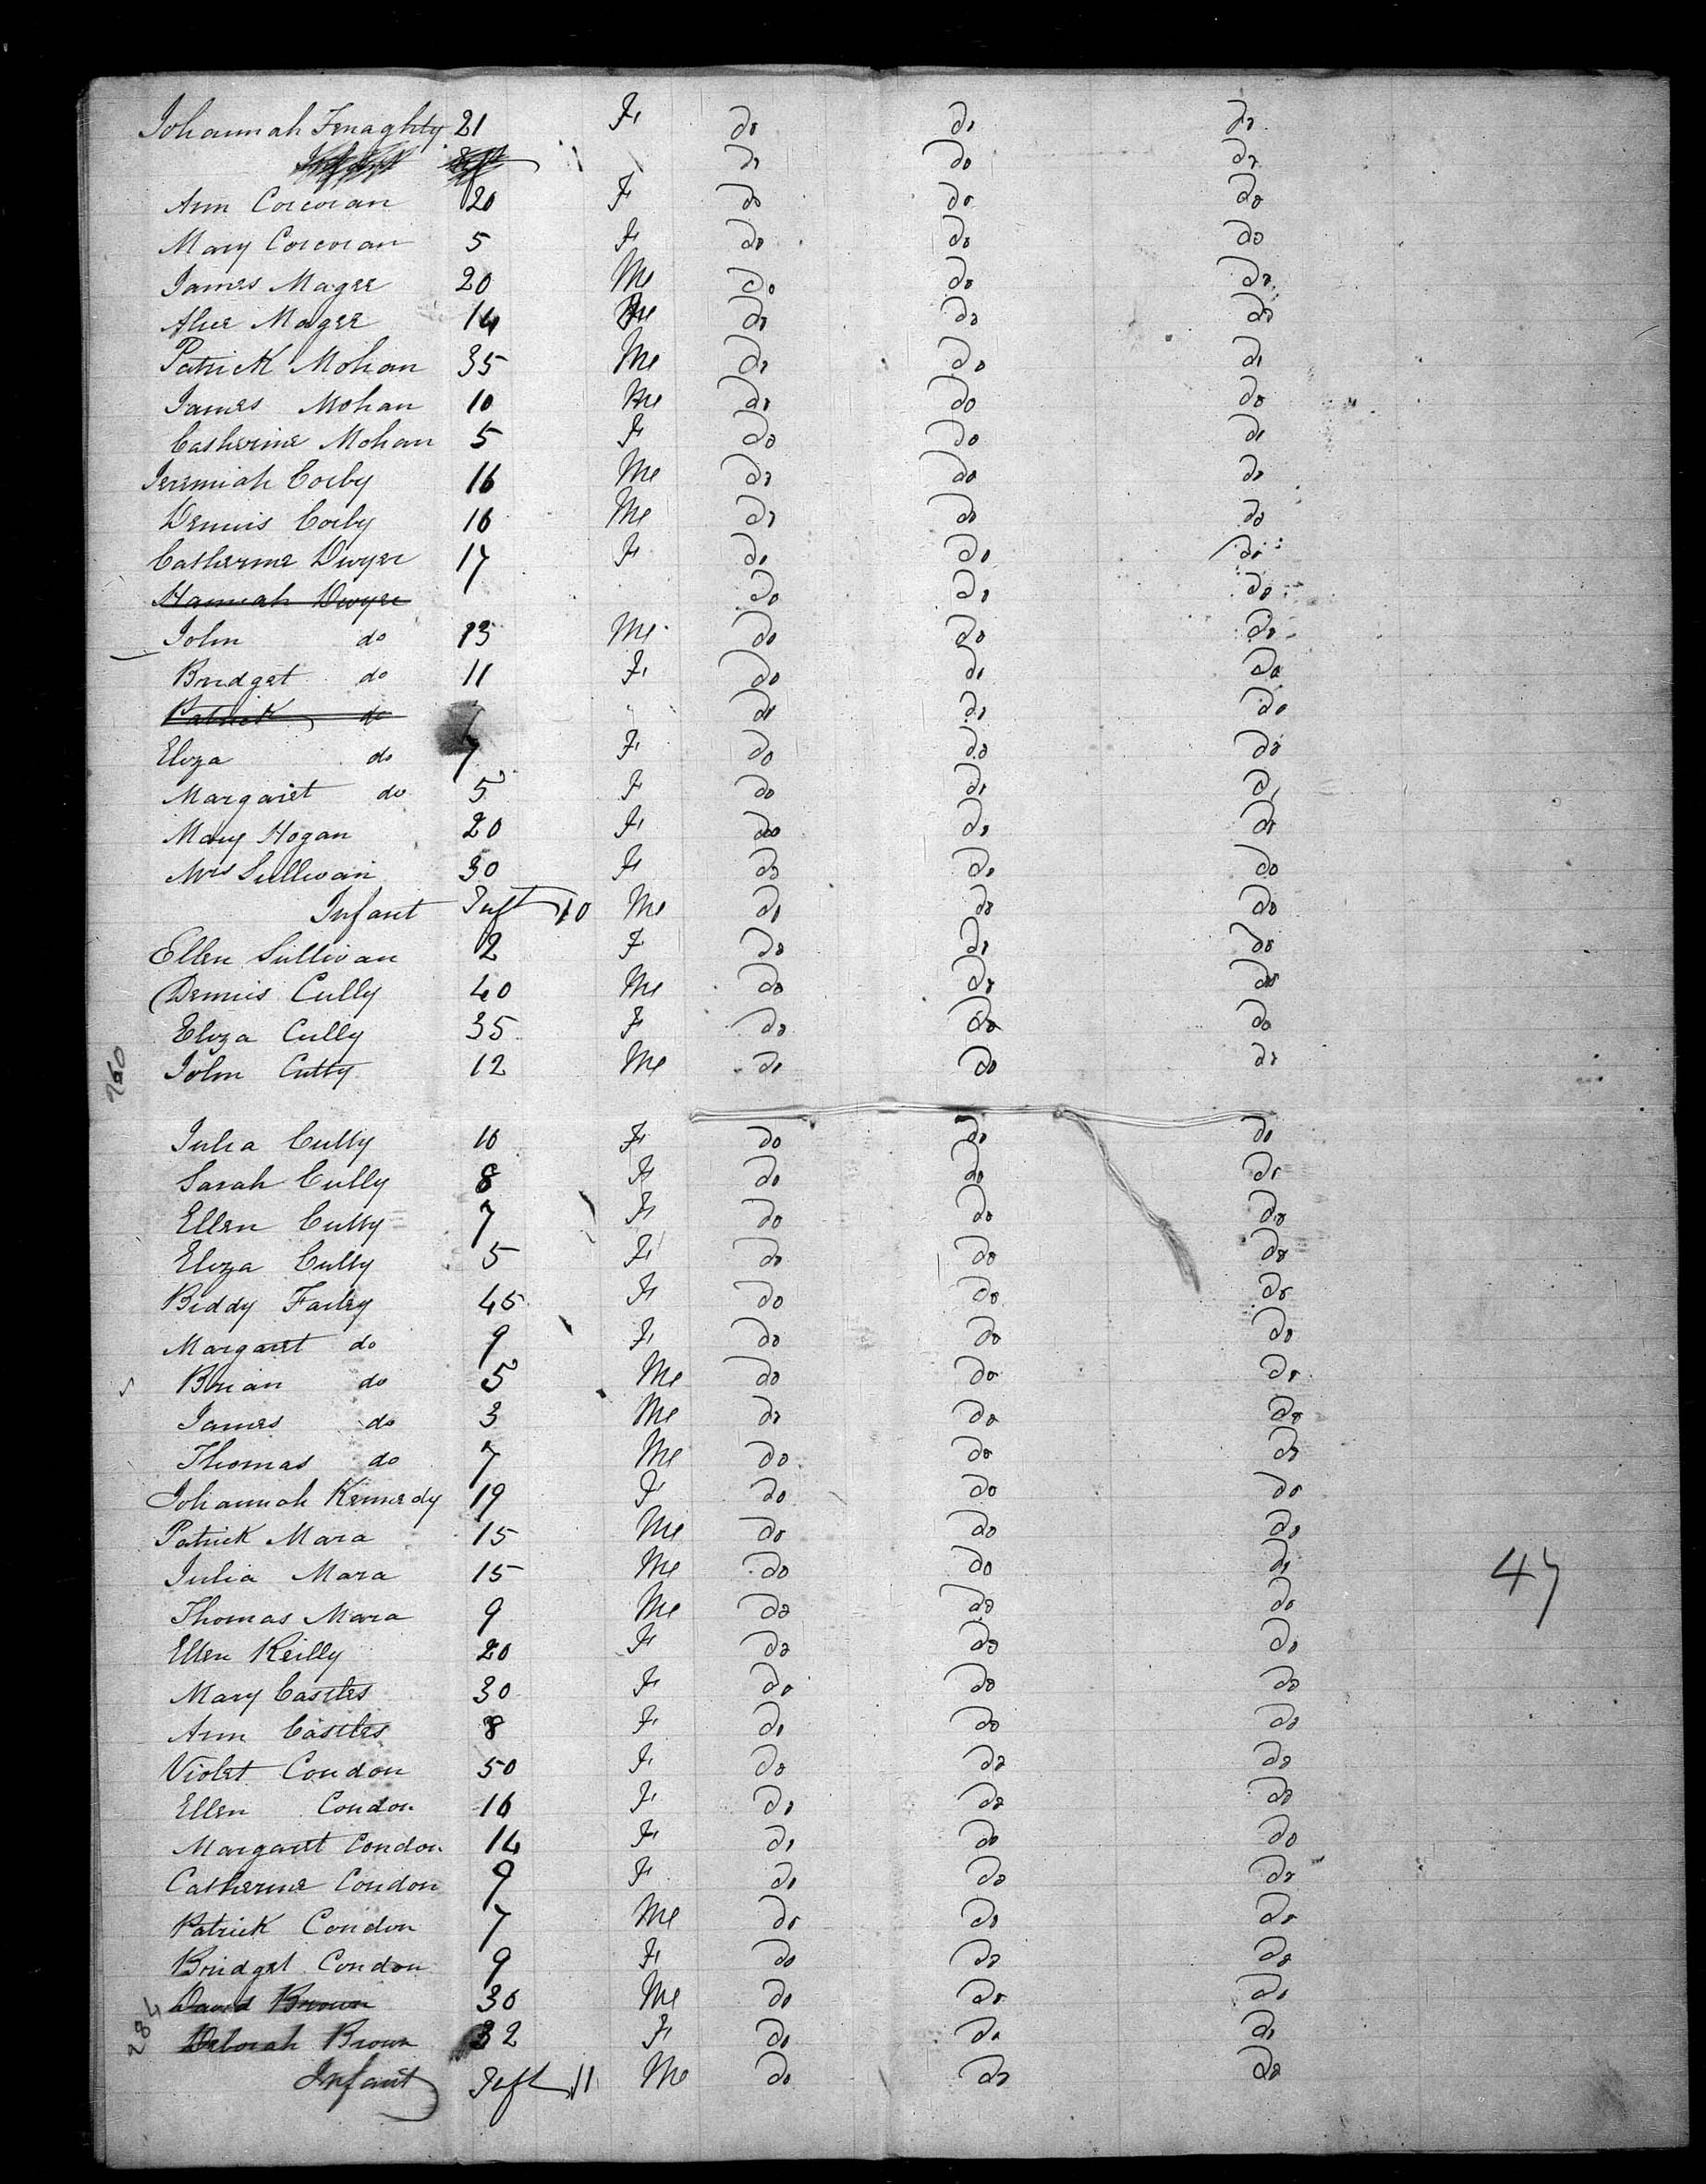 Johannah Fenaghty 21 F. do do do
do do do
Ann Corcoran 20 F do do do
Mary Corcoran 5 F do do do
James Magee 20 Me do do do
Alice Magee 14 do do do
Patrick Mohan 35 Me do do do
James Mohan 10 Me do do do
Catherine Mohan 5 F do do do
Jeremiah Corby 16 Me do do do
Dennis Corby 16 Me do do do
Catherine Dwyer 17 F do do do
Hannah Dwyer do do do
John do 13 Me do do do
Bridget do 11 F. do do do
Patrick do do do do
Eliza do 7 F do do do
Margaret do 5 F do do do
Mary Hogan 20 F. do do do
Mrs Sullivan 30 F do do do
Infant Inft 10 Me do do do
Ellen Sullivan 2 F do do do
Dennis Cully 40 Me do do do
Eliza Cully 35 F do do do
260 John Cully 12 Me do do do
Julia Cully 10 F do do do
Sarah Cully 8 F do do do
Ellen Cully 7 F do do do
Eliza Cully 5 F do do do
Biddy Farley 45 F do do do
Margaret do 9 F. do do do
Brian do 5 Me do do do
James do 3 Me do do do
Thomas do 7 Me do do do
Johannah Kennedy 19 F do do do
Patrick Mara 15 Me do do do
Julia Mara 15 Me do do do 47
Thomas Mara 9 Me do do do
Ellen Reilly 20 F do do do
Mary Castles 30 F do do do
Ann Castles 8 F do do do
Violet Condon 50 F do do do
Ellen Condon 16 F. do do do
Margaret Condon 14 F do do do
Catherine Condon 9 F do do do
Patrick Condon 7 Me do do do
Bridget Condon 9 F do do do
David Brown 30 Me do do do
284 Deborah Brown 32 F do do do
Infant Inft 11 Me do do do